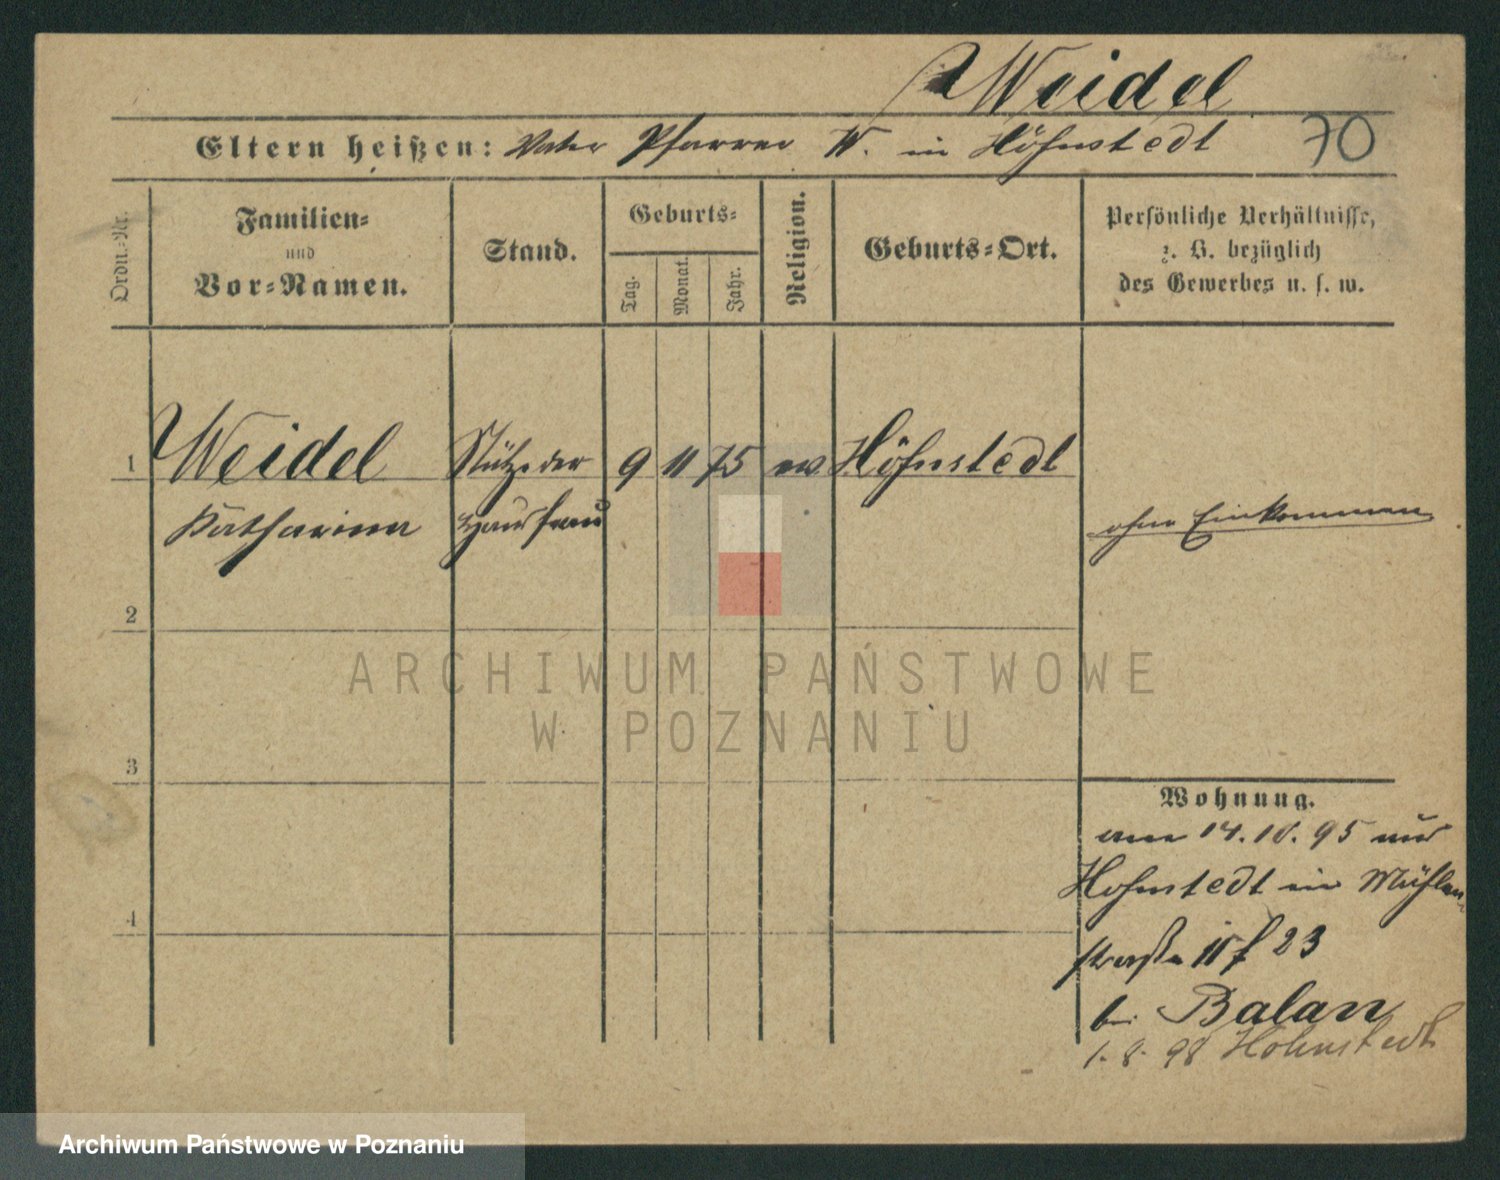 Weidel
Eltern heißen: Vater Pfarrer W. in Höhnstedt
70
Ordn.-Nr.
Familien-
und
Vor-Namen.
Stand.
Geburts-
Tag.
Monat.
Jahr.
Religion.
Geburts-Ort.
Persönliche Verhältnisse,
z. B. bezüglich
des Gewerbes u. s. w.
1 Weidel Stütze der 9 11 75 ev Höhnstedt
Katharina Hausfrau
ohne Einkommen
2
3
4
Wohnung.
am 14. 10. 95 aus
Hohnstedt in Mühlen-
straße 23
bei Balan
1. 8. 98 Hohnstedt
ARCHIWUM PAŃSTWOWE
W POZNANIU
Archiwum Państwowe w Poznaniu